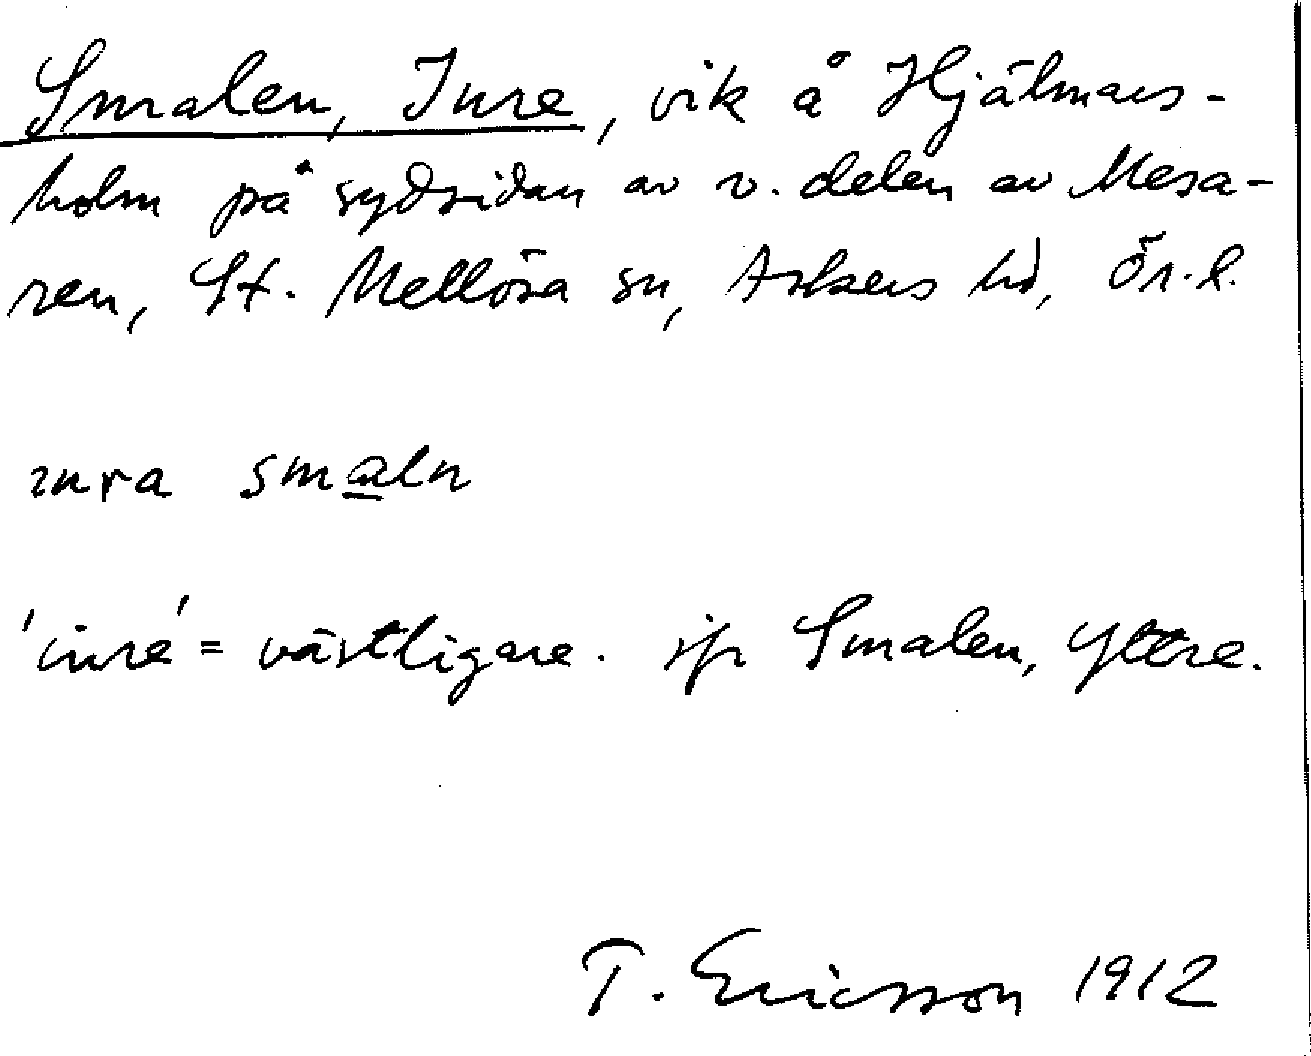 Smalen, Inre, vik å Hjälmars-
holm på sydsidan av v. delen av Mesa-
ren, St. Mellösa sn, Askers hd, Ör. l.
ınra smaln
'inre' = västligare. Smalen, Yttre.
T. Ericsson 1912